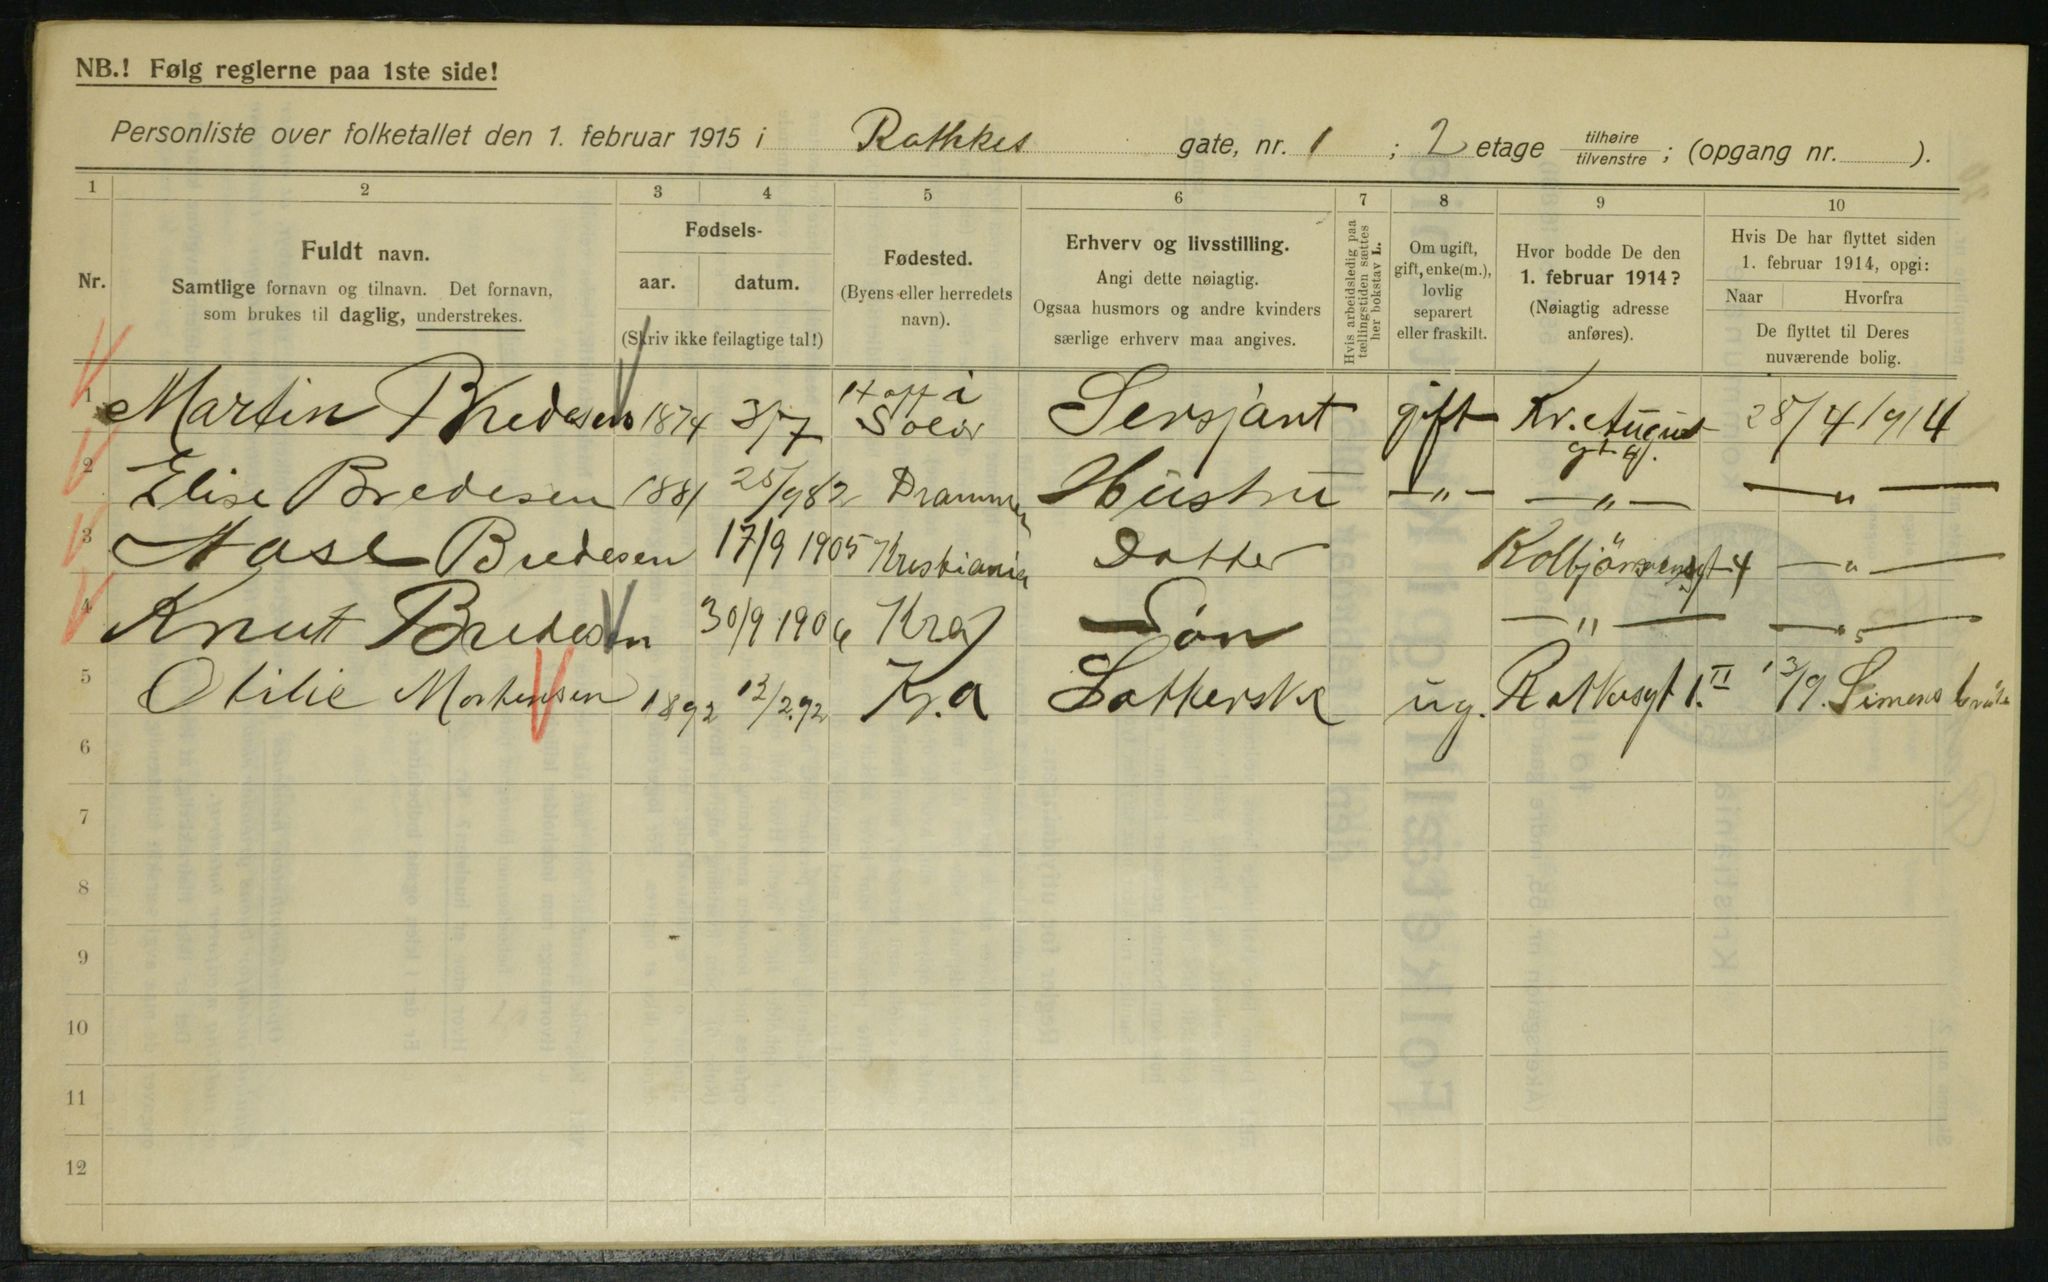 NB.! Følg reglerne paa 1ste side!
Personliste over folketallet den 1. februar 1915 i Rathkes gate, nr. 1 ; 2 etage tilhøire / tilvenstre ; (opgang nr. ).
1 2 3 4 5 6 7 8 9 10
Nr.
Fuldt navn.
Samtlige fornavn og tilnavn. Det fornavn,
som brukes til daglig, understrekes.
Fødsels-
aar. datum.
(Skriv ikke feilagtige tal!)
Fødested.
(Byens eller herredets
navn).
Erhverv og livsstilling.
Angi dette nøiagtig.
Ogsaa husmors og andre kvinders
særlige erhverv maa angives.
Hvis arbeidsledig paa
tællingstiden sættes
her bokstav L.
Om ugift,
gift, enke(m.),
lovlig
separert
eller fraskilt.
Hvor bodde De den
1. februar 1914?
(Nøiagtig adresse
anføres).
Hvis De har flyttet siden
1. februar 1914, opgi:
Naar Hvorfra
De flyttet til Deres
nuværende bolig.
1 Martin Bredesen 1874 3/7 Hoff i Solør Sersjant gift Kr. August gt 28/4 1914
2 Elise Bredesen 1881 Drammen Hustru —"— —"— —"—
3 Aase Bredesen 17/9 1905 Kristiania Datter Kolbjörnsensgt 4 —"—
4 Knut Bredesen 30/9 1906 Kra Søn —"— —"—
5 Otilie Mortensen 1892 12/2.92 Kr.a ug. Ratkesgt 1. II 13/9. Simens
6
7
8
9
10
11
12